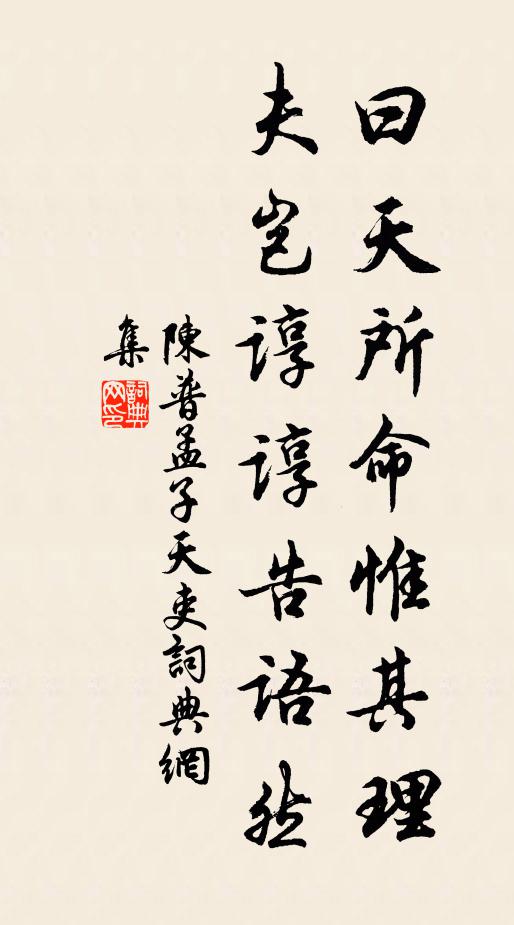 曰天所命惟其理
夫岂諄諄告語然
陳普孟子天吏詞典網
集
詞典网印